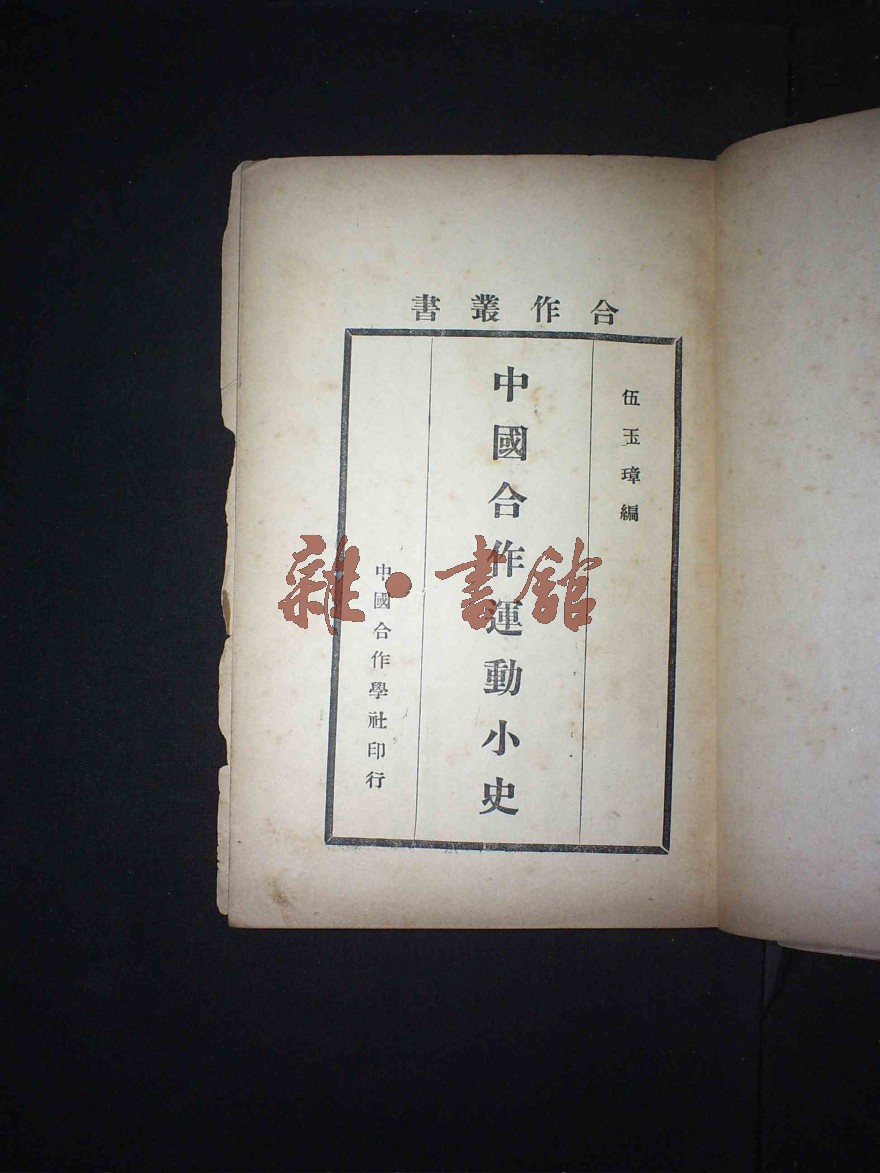 合作叢書
伍玉璋編
中國合作運動小史
中國合作學社印行
雜·書館